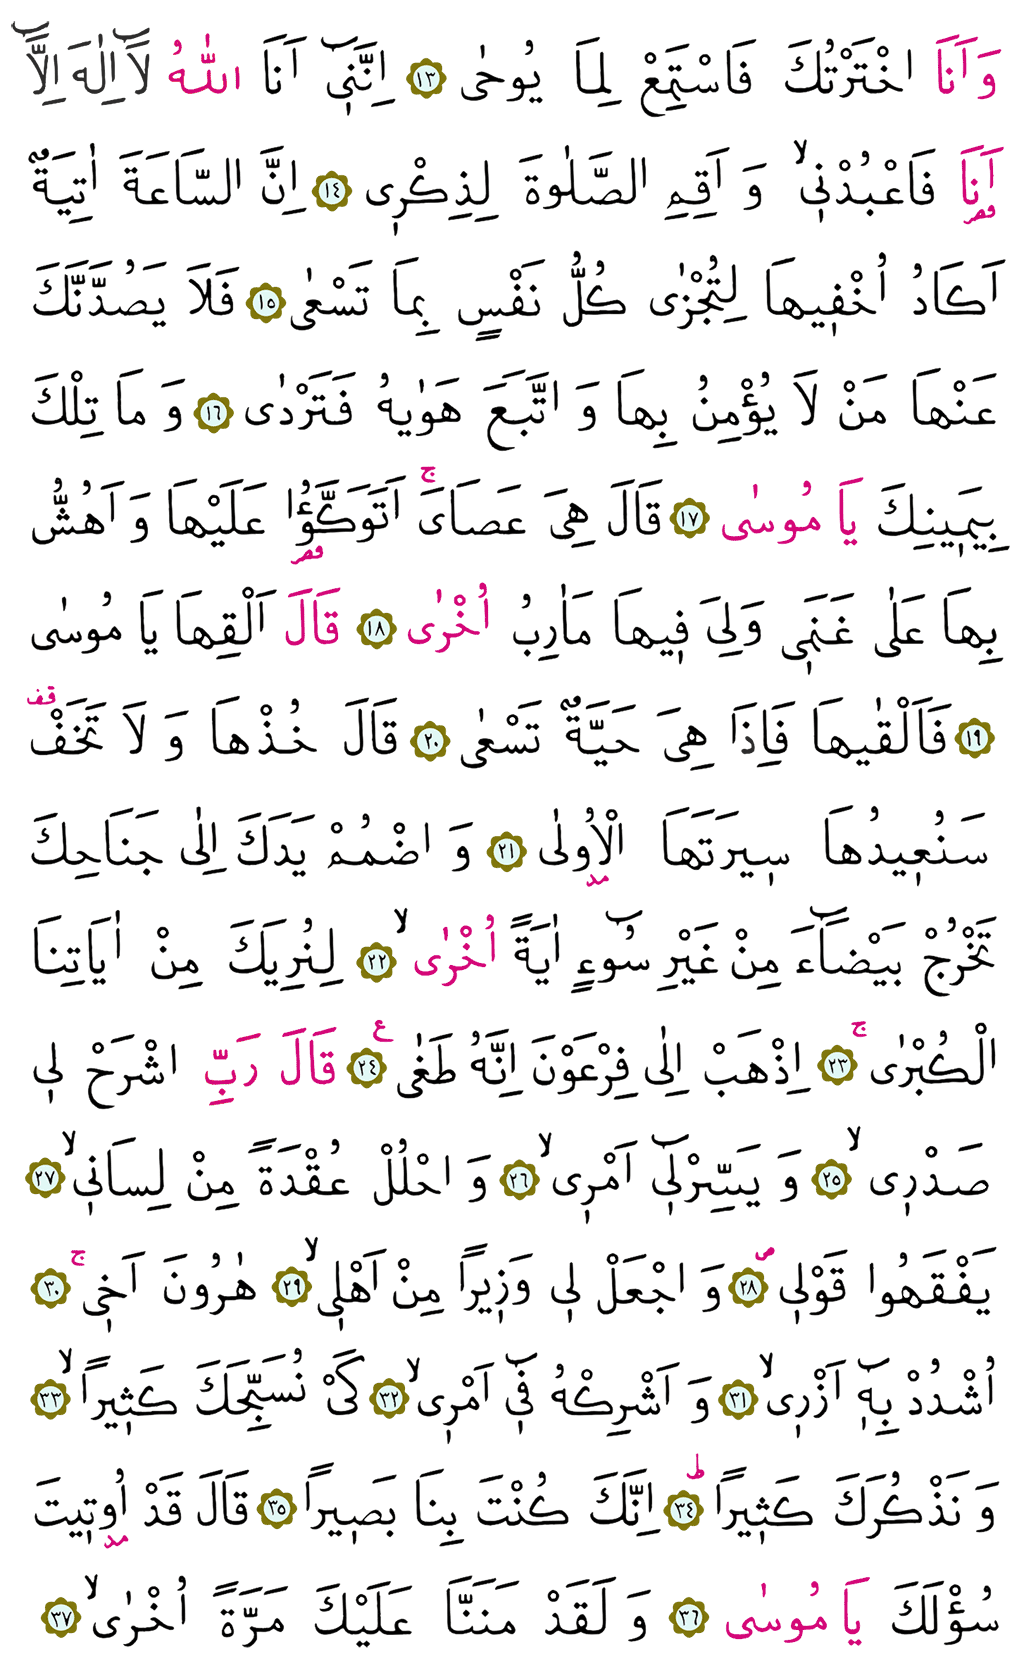 وَاَنَا اخْتَرْتُكَ فَاسْتَمِعْ لِمَا يُوحٰى ﴿١٣﴾ اِنَّنٖٓي اَنَا اللّٰهُ لَٓا اِلٰهَ اِلَّٓا
اَنَا۬ فَاعْبُدْنٖيۙ وَ اَقِمِ الصَّلٰوةَ لِذِكْرٖي ﴿١٤﴾ اِنَّ السَّاعَةَ اٰتِيَةٌ
اَكَادُ اُخْفٖيهَا لِتُجْزٰى كُلُّ نَفْسٍ بِمَا تَسْعٰى ﴿١٥﴾ فَلَا يَصُدَّنَّكَ
عَنْهَا مَنْ لَا يُؤْمِنُ بِهَا وَ اتَّبَعَ هَوٰيهُ فَتَرْدٰى ﴿١٦﴾ وَ مَا تِلْكَ
بِيَمٖينِكَ يَا مُوسٰى ﴿١٧﴾ قَالَ هِيَ عَصَايَۚ اَتَوَكَّؤُ۬ا عَلَيْهَا وَ اَهُشُّ
بِهَا عَلٰى غَنَمٖي وَلِيَ فٖيهَا مَاٰرِبُ اُخْرٰى ﴿١٨﴾ قَالَ اَلْقِهَا يَا مُوسٰى
﴿١٩﴾ فَاَلْقٰيهَا فَاِذَا هِيَ حَيَّةٌ تَسْعٰى ﴿٢٠﴾ قَالَ خُذْهَا وَ لَا تَخَفْ۠
سَنُعٖيدُهَا سٖيرَتَهَا الْاُو۫لٰى ﴿٢١﴾ وَ اضْمُمْ يَدَكَ اِلٰى جَنَاحِكَ
تَخْرُجْ بَيْضَٓاءَ مِنْ غَيْرِ سُٓوءٍ اٰيَةً اُخْرٰىۙ ﴿٢٢﴾ لِنُرِيَكَ مِنْ اٰيَاتِنَا
الْكُبْرٰىۚ ﴿٢٣﴾ اِذْهَبْ اِلٰى فِرْعَوْنَ اِنَّهُ طَغٰى ﴿٢٤﴾ ع قَالَ رَبِّ اشْرَحْ لٖي
صَدْرٖيۙ ﴿٢٥﴾ وَ يَسِّرْلٖٓي اَمْرٖيۙ ﴿٢٦﴾ وَ احْلُلْ عُقْدَةً مِنْ لِسَانٖيۙ ﴿٢٧﴾
يَفْقَهُوا قَوْلٖيۖ ﴿٢٨﴾ وَ اجْعَلْ لٖي وَزٖيراً مِنْ اَهْلٖيۙ ﴿٢٩﴾ هٰرُونَ اَخٖيۚ ﴿٣٠﴾
اُشْدُدْ بِهٖٓ اَزْرٖيۙ ﴿٣١﴾ وَ اَشْرِكْهُ فٖٓي اَمْرٖيۙ ﴿٣٢﴾ كَيْ نُسَبِّحَكَ كَثٖيراًۙ ﴿٣٣﴾
وَ نَذْكُرَكَ كَثٖيراًؕ ﴿٣٤﴾ اِنَّكَ كُنْتَ بِنَا بَصٖيراً ﴿٣٥﴾ قَالَ قَدْ اُو۫تٖيتَ
سُؤْلَكَ يَا مُوسٰى ﴿٣٦﴾ وَ لَقَدْ مَنَنَّا عَلَيْكَ مَرَّةً اُخْرٰىۙ ﴿٣٧﴾